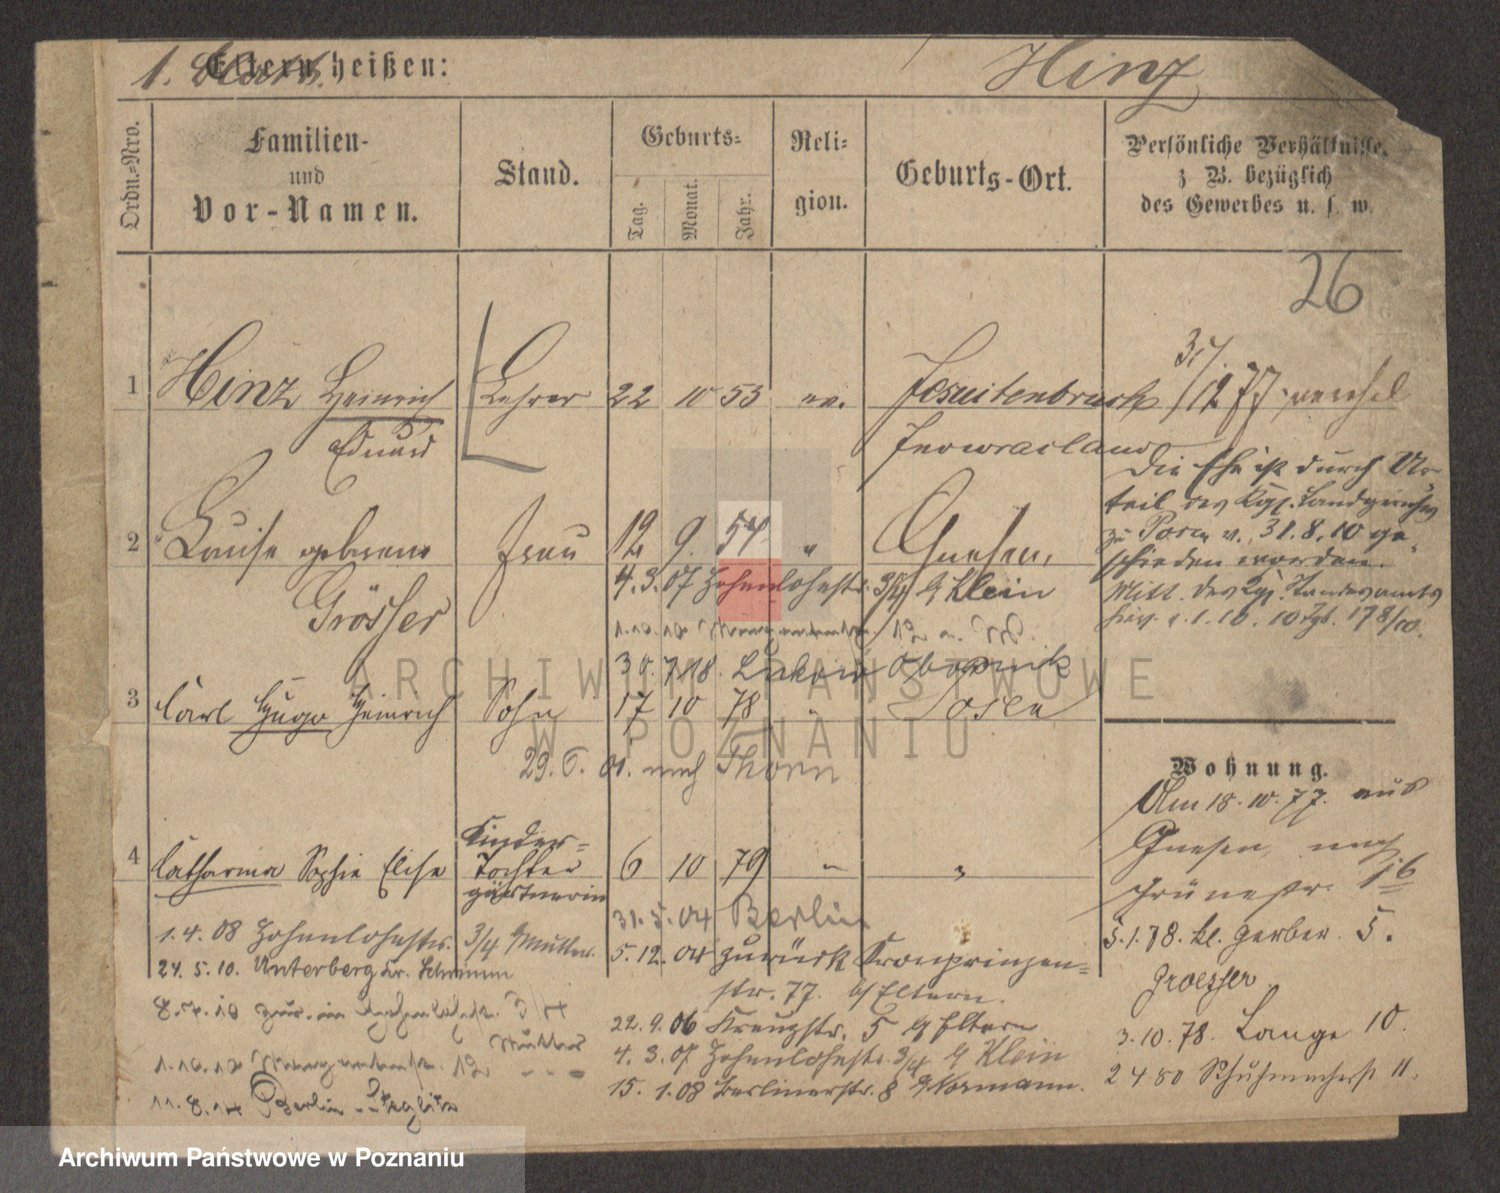 1. Eltern heißen: Hinz
Ordn.-Nro.
Familien-
und
Vor-Namen.
Stand.
Geburts-
Tag.
Monat.
Jahr.
Reli-
gion.
Geburts-Ort.
Persönliche Verhältnisse,
z. B. bezüglich
des Gewerbes u. s. w.
26
1 Hinz Heinrich Lehrer 22 10 53 ev. Jesuitenbruch 31/12 77
Eduard Inowraclaw
Die Ehe ist durch Ur-
teil des Kgl. Landgerichts
2 Luise geborene Frau 12 9. 54 " Gnesen,
zu Posen v. 31.8.10 ge-
schieden worden.
Grösser 4.3.07 Hohenlohestr. 3/4 b/ Klein
Mitt. des Kgl. Standesamts
1.10.10 12
30.7.18. Obornik
3 Carl Hugo Heinrich Sohn 17 10 78 " Posen
29.6.01. nach Thorn
Wohnung.
Am 18.10.77. aus
Gnesen, nach
4 Catharina Sophie Elise Tochter 6 10 79 " "
Kinder-
gärtnerin
Grünestr. 1b
31.5.04 Berlin
5.1.78. kl. Gerber. 5.
Groesser
1.4.08 Hohenlohestr. 3/4 b/ Mutter.
5.12.04 zurück Kronprinzen-
str. 77. b/ Eltern.
24.5.10. Unterberg Kr. Schrimm
8.7.10 zur. in Hohenlohestr. 3/4
Mutter
22.9.06 Kreuzstr. 5 b/ Eltern
3.10.78. Lange 10.
4.3.07 Hohenlohestr. 3/4 b/ Klein
1.10.10 12 - - -
15.1.08 Berlinerstr. 8 b/ Normann.
2 4 80 Schuhmacherstr 11.
11.8.14 Berlin-Steglitz
ARCHIWUM PAŃSTWOWE
W POZNANIU
Archiwum Państwowe w Poznaniu